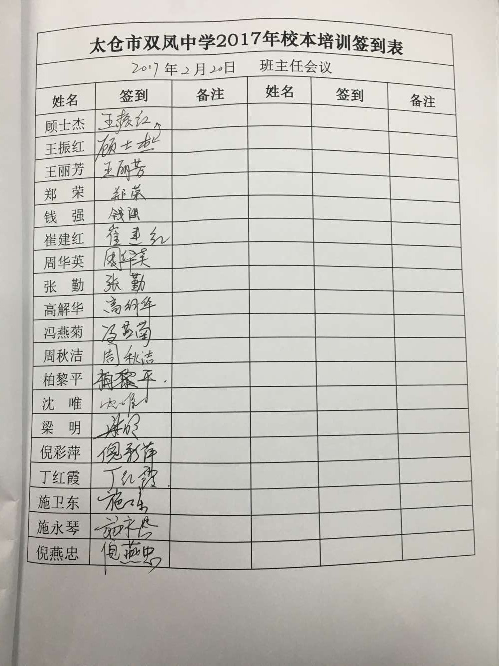 太仓市双凤中学2017年校本培训签到表
2017年2月20日 班主任会议
姓名 签到 备注 姓名 签到 备注
顾士杰 王振红
王振红 顾士杰
王丽芳 王丽芳
郑 荣 郑荣
钱 强 钱强
崔建红 崔建红
周华英 周华英
张 勤 张勤
高解华 高解华
冯燕菊 冯燕菊
周秋洁 周秋洁
柏黎平 柏黎平
沈 唯 沈唯
梁 明 梁明
倪彩萍 倪彩萍
丁红霞 丁红霞
施卫东 施卫东
施永琴 施永琴
倪燕忠 倪燕忠